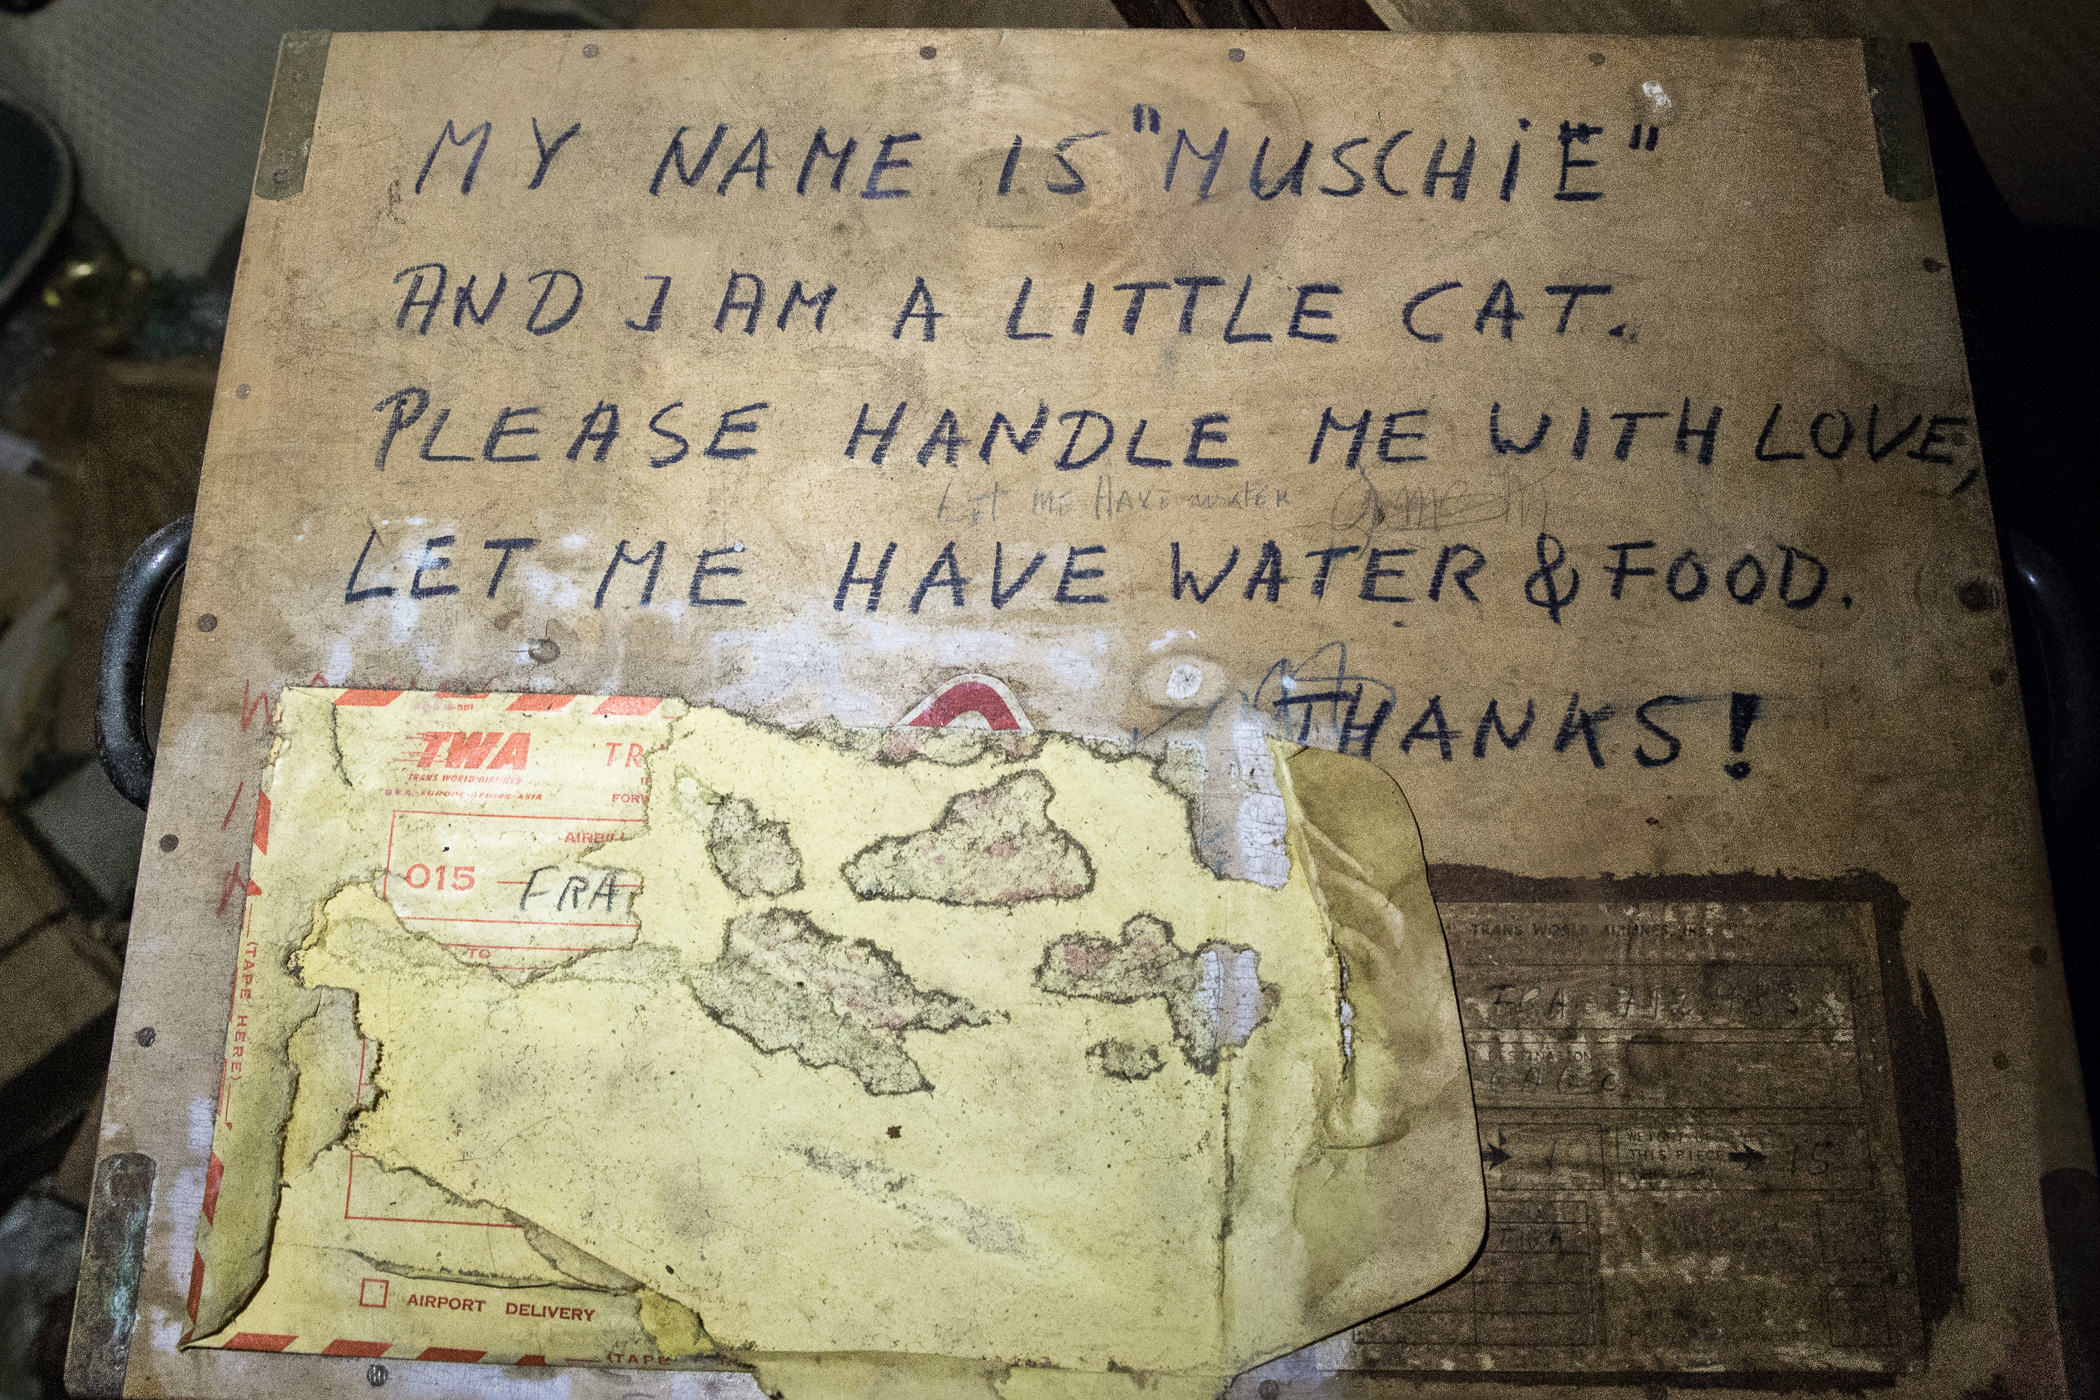 MY NAME IS "MUSCHIE"
AND I AM A LITTLE CAT.
PLEASE HANDLE ME WITH LOVE,
Let ME HAVE water
LET ME HAVE WATER & FOOD.
THANKS!
TWA
TRANS WORLD AIRLINES
U.S.A. EUROPE AFRICA ASIA
TR
FOR
AIRBILL
015 FRA
TO
(TAPE HERE)
AIRPORT DELIVERY
(TAPE
TRANS WORLD AIRLINES, INC.
FRA 712453
DESTINATION
1
WEIGHT OF
THIS PIECE
15